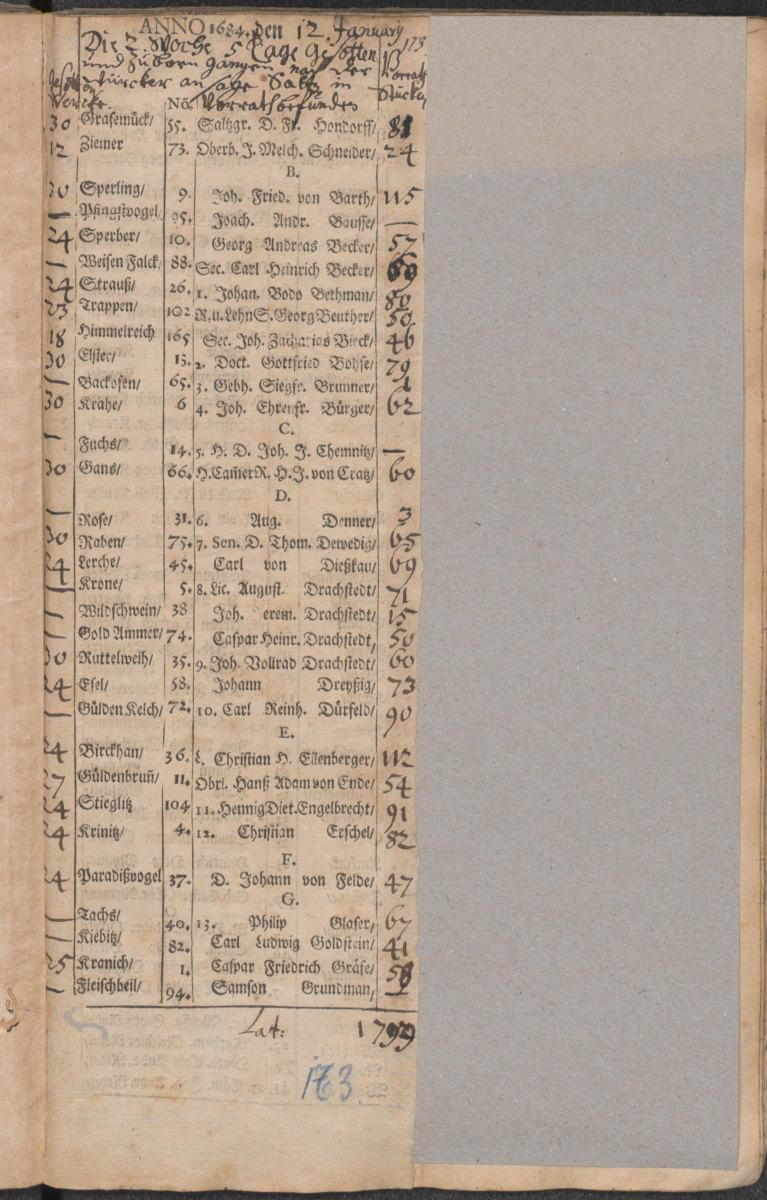 ANNO 1684. den 12. January
173
Die 2. Woche 5 Tage gesotten
und zuvorn gangen, nach der
Würcker ansage Saltz in
Vorrath befunden
Vorrath
Stücke
Wercke. No.
30 Grasemück/ 55. Saltzgr. D. Fr. Hondorff/ 81
12 Ziemer 73. Oberb. J. Melch. Schneider/ 24
B.
30 Sperling/ 9. Joh. Fried. von Barth/ 115
— Pfingstvogel 95. Joach. Andr. Bausse/ —
24 Sperber/ 10. Georg Andreas Becker/ 57
— Weisen Falck/ 88. Sec. Carl Heinrich Becker/ 69
24 Strauß/ 26. 1. Johan. Bodo Bethman/ 80
23 Trappen/ 102 R.u.LehnS.Georg Beuther/ 50
18 Himmelreich 165 Sec. Joh. Zacharias Bieck/ 46
30 Elster/ 13. 2. Doct. Gottfried Bohse/ 79
— Backofen/ 65. 3. Gebh. Siegfr. Brunner/ 1
30 Krähe/ 6 4. Joh. Ehrenfr. Bürger/ 62
C.
— Fuchs/ 14. 5. H. D. Joh. J. Chemnitz/ —
30 Gans/ 66. H.Cam̃erR. H.J. von Cratz/ 60
D.
— Rose/ 31. 6. Aug. Denner/ 3
30 Raben/ 75. 7. Sen. D. Thom. Dewedig/ 65
24 Lerche/ 45. Carl von Dießkau/ 69
— Krone/ 5. 8. Lic. August. Drachstedt/ 71
— Wildschwein/ 38 Joh. erem. Drachstedt/ 15
— Gold Ammer/ 74. Caspar Heinr. Drachstedt, 50
30 Ruttelweih/ 35. 9. Joh. Vollrad Drachstedt/ 60
24 Esel/ 58. Johann Dreyßig/ 73
— Gülden Kelch/ 72. 10. Carl Reinh. Dürfeld/ 90
E.
24 Birckhan/ 36. L. Christian H. Eilenberger/ 112
27 Güldenbrun̄/ 11. Obrl. Hanß Adam von Ende/ 54
24 Stieglitz 104 11. Hennig Diet. Engelbrecht/ 91
24 Krinitz/ 4. 12. Christian Erschel/ 82
F.
24 Paradißvogel 37. D. Johann von Felde/ 47
G.
— Tachs/ 40. 13. Philip Glaser, 67
— Kiebitz/ 82. Carl Ludwig Goldstein/ 41
25 Kranich/ 1. Caspar Friedrich Gräfe/ 58
— Fleischbeil/ 94. Samson Grundman, —
Lat: 1799
163.